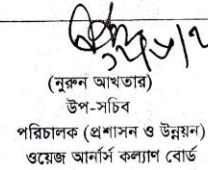 (নুরুন আখতার)
উপ-সচিব
পরিচালক (প্রশাসন ও উন্নয়ন)
ওয়েজ আর্নার্স কল্যাণ বোর্ড